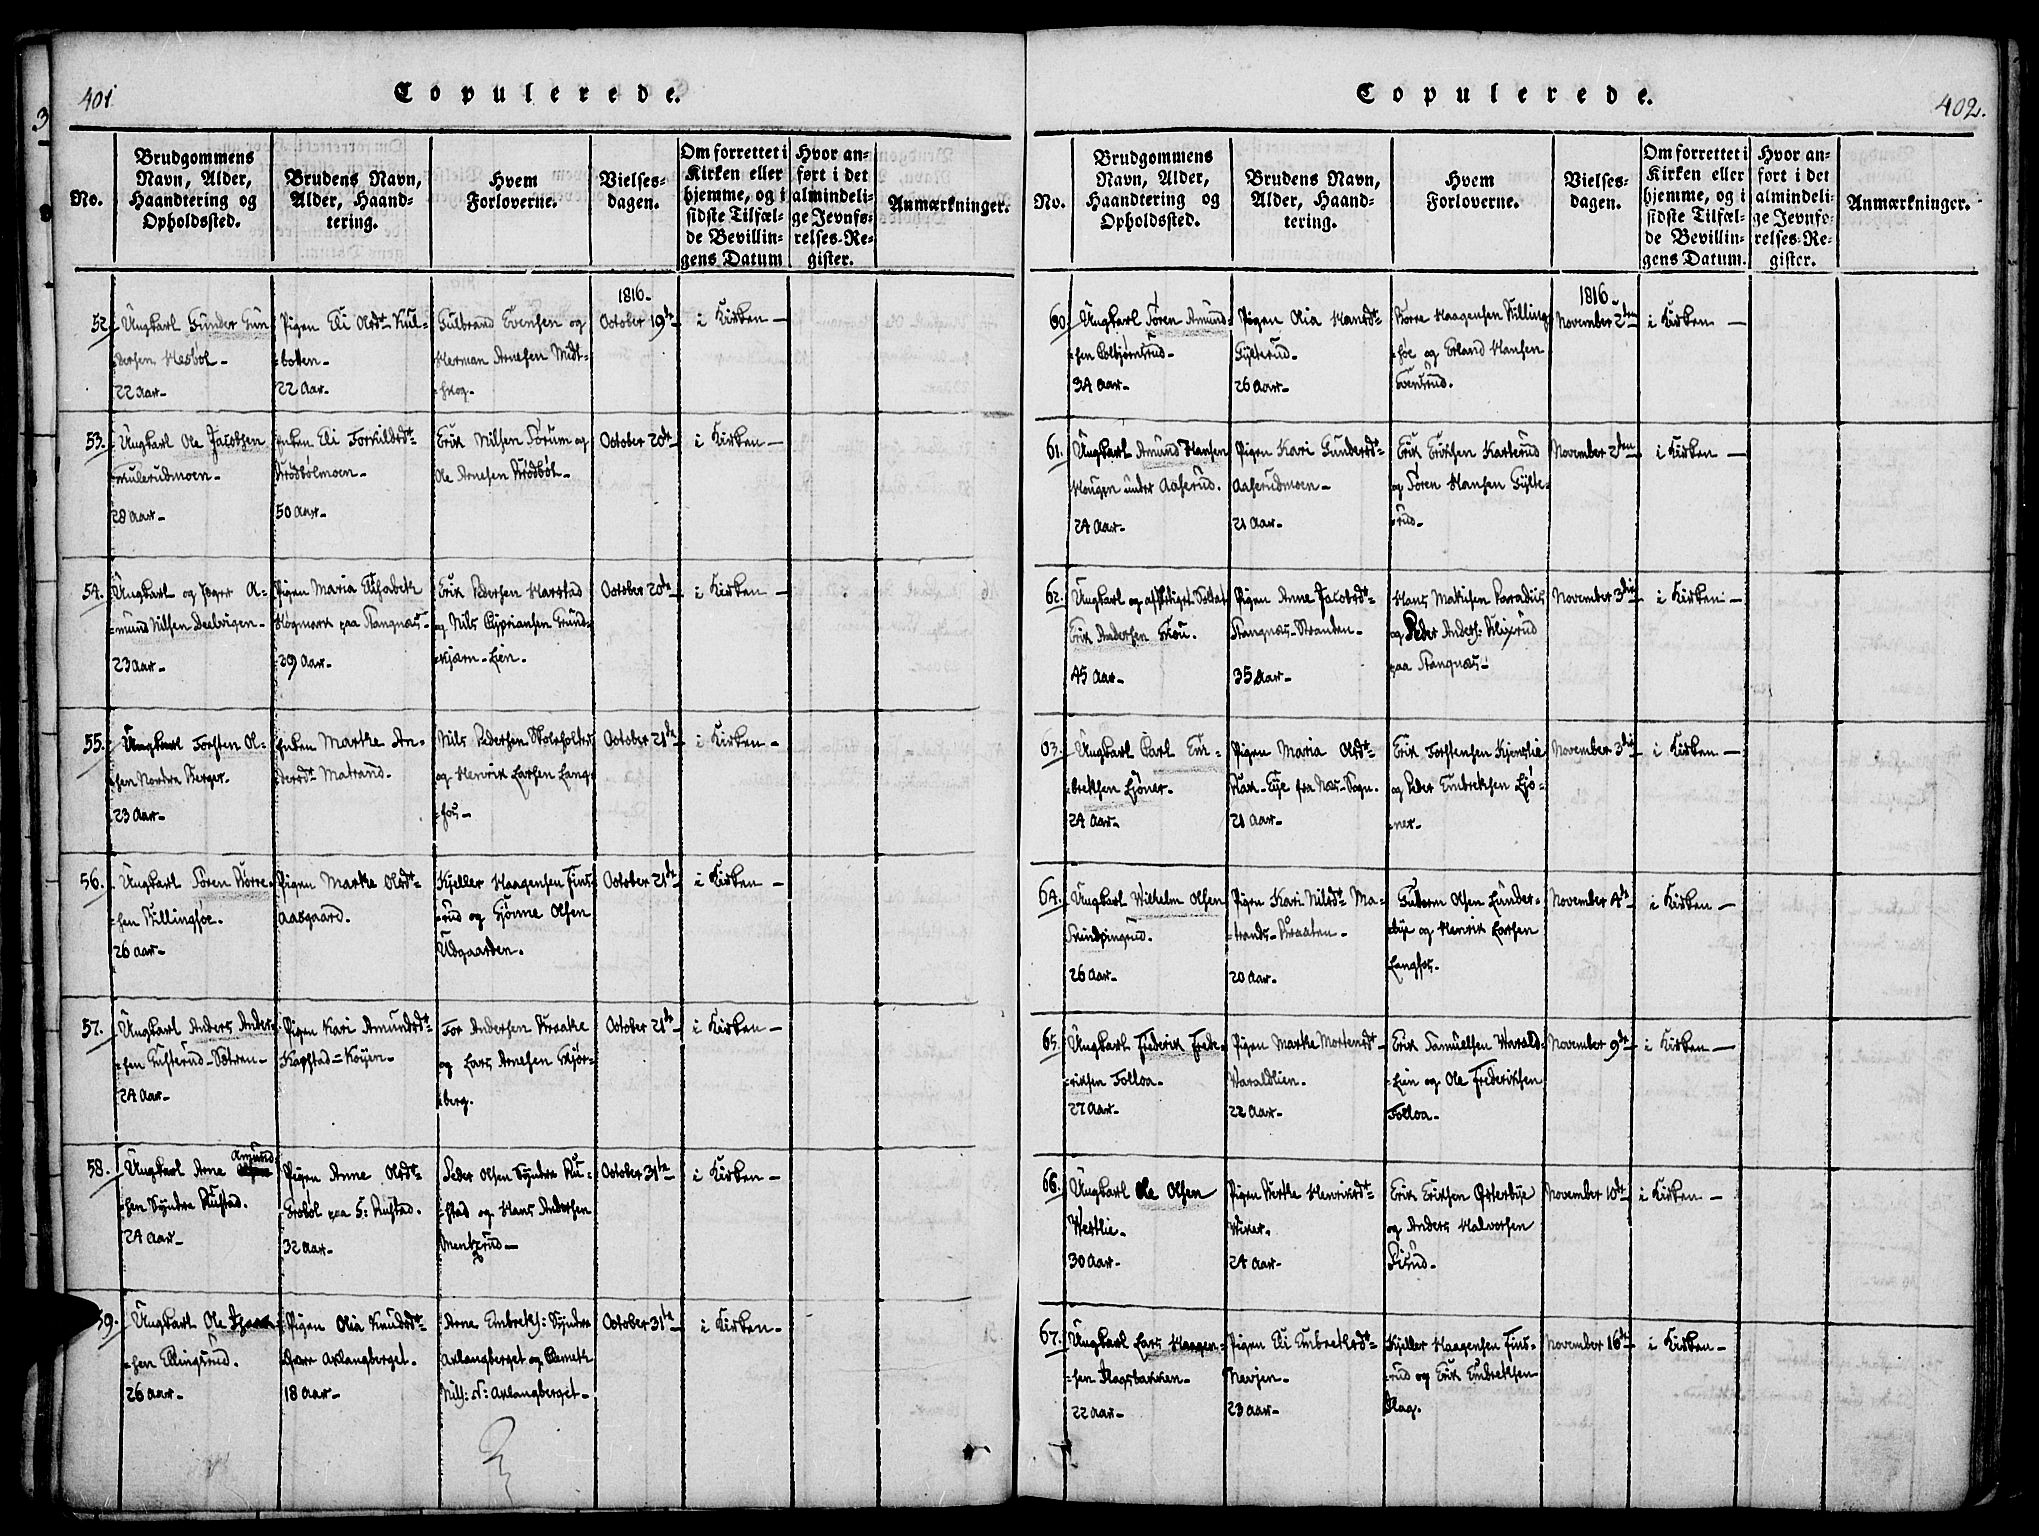 401
Copulerede.
No.
Brudgommens
Navn, Alder,
Haandtering og
Opholdssted.
Brudens Navn,
Alder, Haand-
tering.
Hvem
Forloverne.
Vielses-
dagen.
Om forrettet i
Kirken eller
hjemme, og i
sidste Tilfæl-
de Bevillin-
gens Datum
Hvor an-
ført i det
almindeli-
ge Jevnfø-
relses-Re-
gister.
Anmærkninger.
1816.
52. Ungkarl Gunder Gun
dersen Hesbøl
22 Aar
Pigen Eli Olsdt
22 Aar
Gulbrand Evensen og
Herman Arnesen Midt-
skog
October 19de
i Kirken
53. Ungkarl Ole Jacobsen
Mulerudmoen
28 Aar
Enken Eli Torkildsdt
Brødbølmoen
50 Aar
Erik Nilsen Sørum og
Ole Arnesen Brødbøl
October 20de
i Kirken
54. Ungkarl og Jæger A-
=mund Nilsen
23 Aar
Pigen Maria Elisabeth
Høgmark paa Stangnæs
29 Aar
Erik Pedersen Harstad
og Nils Cypriansen Grund-
=kjærn-Lien
October 20de
i Kirken
55. Ungkarl Torsten Ol-
sen Nordre Berger
23 Aar
Enken Marthe An-
dersdt Matrand.
Nils Pedersen Skoleholder
og Henrik Larsen Lang-
=fos
October 21de
i Kirken
56. Ungkarl Søren Børre-
sen Killingsøe.
26 Aar
Pigen Marthe Olsdt
Aasgaard.
Kjeller Haagensen Fins-
=rud og Gjønne Olsen
Udgaarden.
October 21de
i Kirken
57. Ungkarl Anders Ander-
=sen Gusterud-
24 Aar
Pigen Kari Amundsdt
Harstad=Køien
Tor Andersen Braate
og Lars Arnesen Skjør-
=berg.
October 21de
i Kirken
58. Ungkarl Arne Amund-
=sen Syndre Rustad.
24 Aar
Pigen Anne Olsdt
Grøbøl paa S: Rustad.
32 Aar
Peder Olsen Syndre Ru-
=stad og Hans Andersen
Mentzrud
October 31te
i Kirken
59. Ungkarl Ole
=sen Ellingsrud.
26 Aar
Pigen Olia Knudsdt
Axlangberget.
18 Aar
Arne Embrets: Syndre
Axlangberget og
Nils: N: Axlangberget
October 31te
i Kirken
402.
Copulerede.
No.
Brudgommens
Navn, Alder,
Haandtering og
Opholdssted.
Brudens Navn,
Alder, Haand-
tering.
Hvem
Forloverne.
Vielses-
dagen.
Om forrettet i
Kirken eller
hjemme, og i
sidste Tilfæl-
de Bevillin-
gens Datum.
Hvor an-
ført i det
almindeli-
ge Jevnfø-
relses-Re-
gister.
Anmærkninger.
1816.
60. Ungkarl Søren Amund-
=sen Colbjørnsrud
34 Aar
Pigen Olia Hansdt
Gylterud.
26 Aar
Børre Haagensen Killing
=søe og Erland Hansen
Svensrud.
November 2den
i Kirken
61. Ungkarl Amund Hansen
Haugen under Aaserud.
24 Aar
Pigen Kari Gundersdt
Aaserudmoen
21 Aar
Erik Eriksen Karterud
og Søren Hansen Gylte-
=rud
November 2den
i Kirken
62. Ungkarl og Soldat
Erik Andersen Skou.
45 Aar
Pigen Anne Jacobsdt
Stangnæs-Stranden
35 Aar
Hans Mathisen Paradiis
og Peder Anders: Klixrud
paa Stangnæs
November 3die
i Kirken
63. Ungkarl Carl Em-
=bretsen Ljøner.
24 Aar
Pigen Maria Olsdt
Eje fra Næs-Sogn.
21 Aar
Erik Torstensen Kjenslie
og Peder Embretsen Ljø-
=ner
November 3die
i Kirken
64. Ungkarl Wilhelm Olsen
26 Aar
Pigen Kari Nilsdt Ma-
=trands-Braaten
20 Aar
Guttorm Olsen Lunder-
=bye og Henrik Larsen
Langfos.
November 4de
i Kirken
65. Ungkarl Frederik Frede-
=riksen Tolloa.
27 Aar
Pigen Marthe Mortensdt
Varaldlien.
22 Aar
Erik Samuelsen Varald-
=Lien og Ole Frederiksen
Tolloa
November 9de
i Kirken
66. Ungkarl Ole Olsen
Westlie
30 Aar
Pigen Berthe Henriksdt
Wiker
24 Aar
Erik Eriksen Østerbye
og Anders Halvorsen
November 10de
i Kirken
67. Ungkarl Lars Haagen-
=sen Slagsbakken
22 Aar
Pigen Eli Embretsdt
Nevjen
23 Aar
Kjeller Haagensen Fins-
=rud og Erik Embretsen
Slag.
November 16de
i Kirken